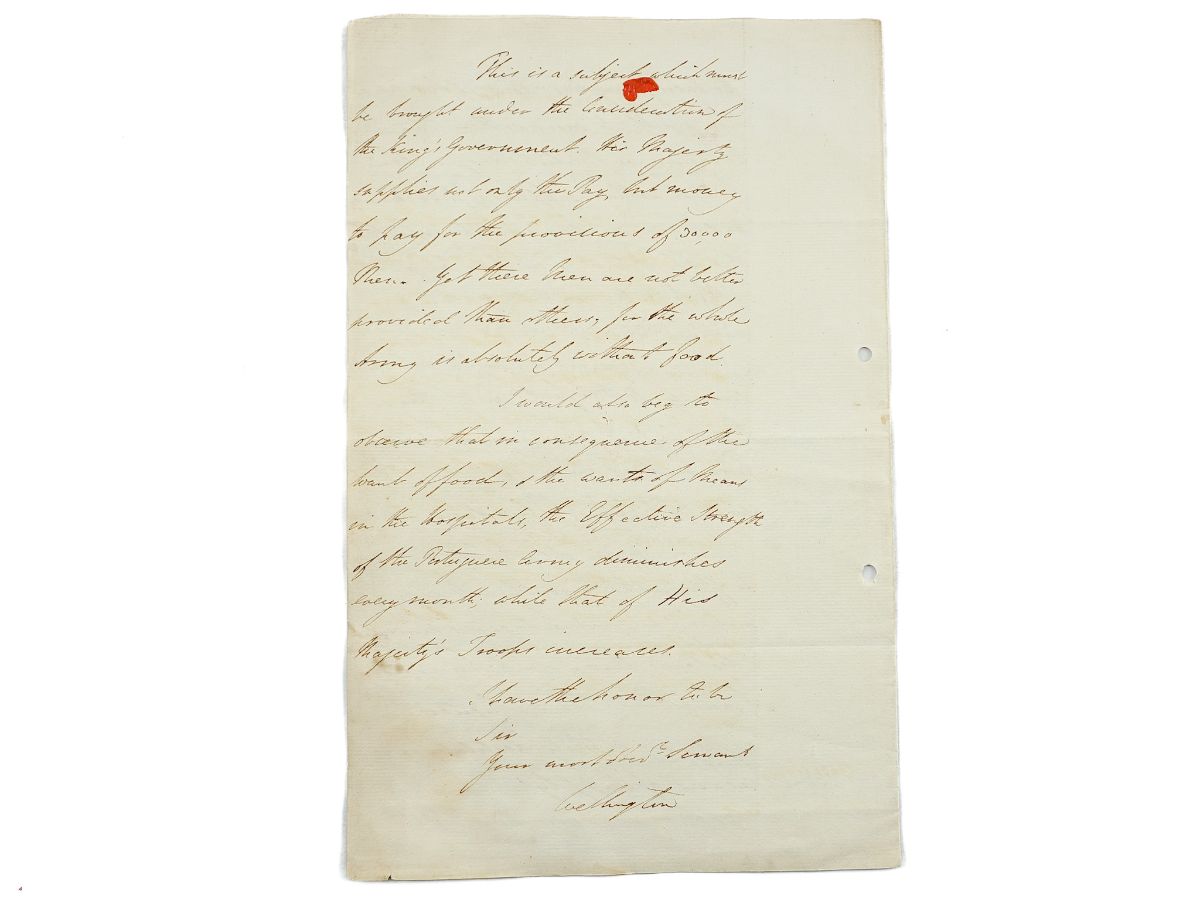 This is a subject which must
be brought under the Consideration of
the King's Government. His Majesty
supplies not only the Pay, but money
to pay for the provisions of 30,000
Men. Yet these Men are not better
provided than others; for the whole
Army is absolutely without food.
I would also beg to
observe that in consequence of the
want of food, & the want of Means
in the Hospitals, the Effective Strength
of the Portuguese Army diminishes
every month; while that of His
Majesty's Troops increases.
I have the honor to be
Sir
Your most Obedt Servant
Wellington